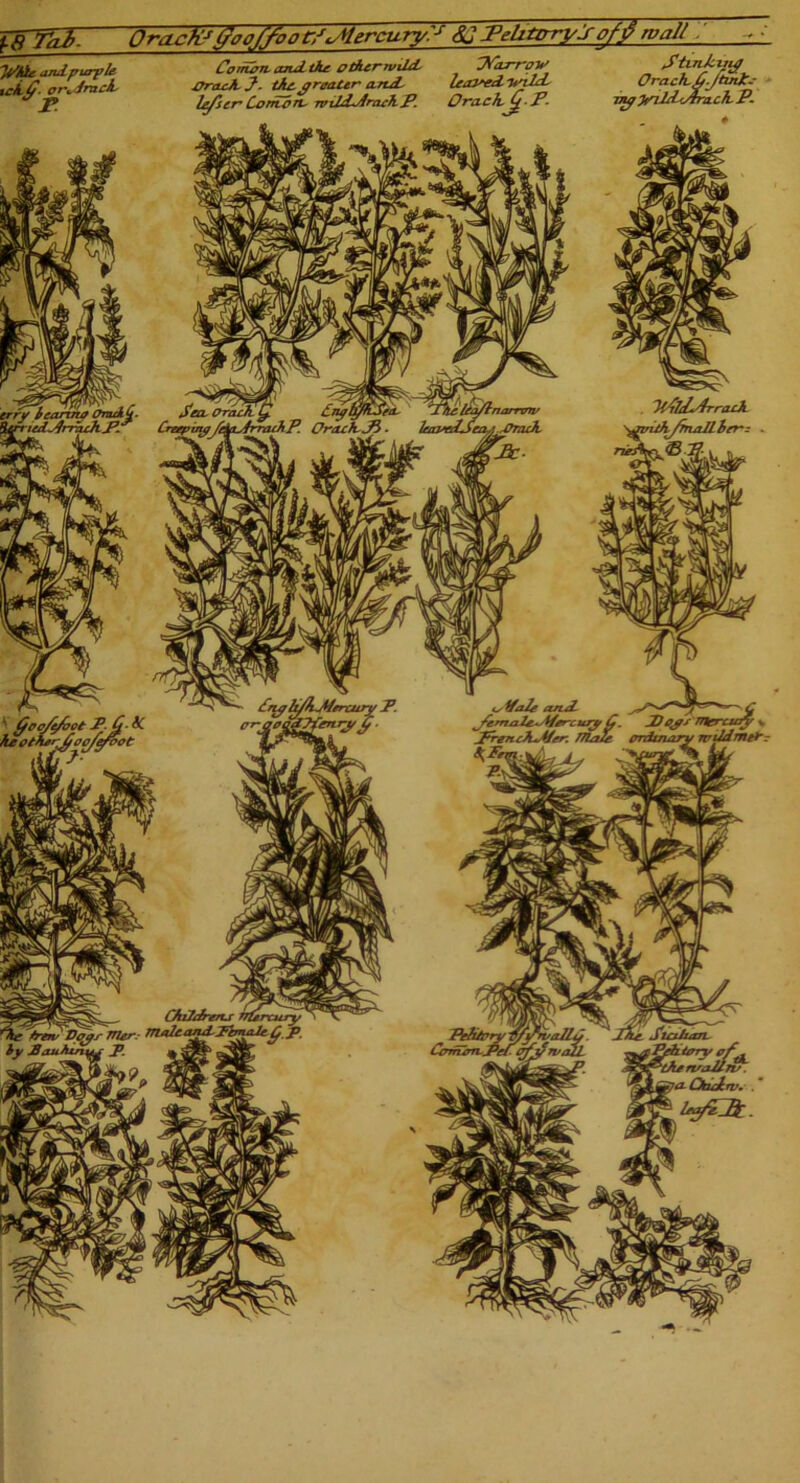 8 Tab. Orach's Goosfoot's Mercury's & Pelitory's of ẙ wall
White and purple
G. or Arach
P.
Com̃on and the other wild
Orach J. the greater and
lesser Com̃on wild Arach P.
Narrow
leaved wild
Orach G. P.
Stinking
Orach G. stink-
ing wild Arach P.
bearing Orach G.
Arrach P.
Sea Orach G.
Creeping sea Arrach P.
English Sea
Orach B.
The least narrow
leaved Sea Orach
Be.
Wild Arrach
with small ber=
ries B. P.
Goosefoot P. G. &
the other Goosefoot
J.
English Mercury P.
or good Henry G.
Male and
female Mercury G.
French Mer. male
& Fem.
P.
Dogs mercury
ordinary wild mer=
cury
Childrens mercury
male and Female G. P.
The new Dogs mer:
by Bauhinus P.
Pelitory of ẙ wall G.
Com̃on Pel. of ẙ wall
P.
The Sicilian
Pelitory of
the wall w.
a Chickw.
leaf Be.